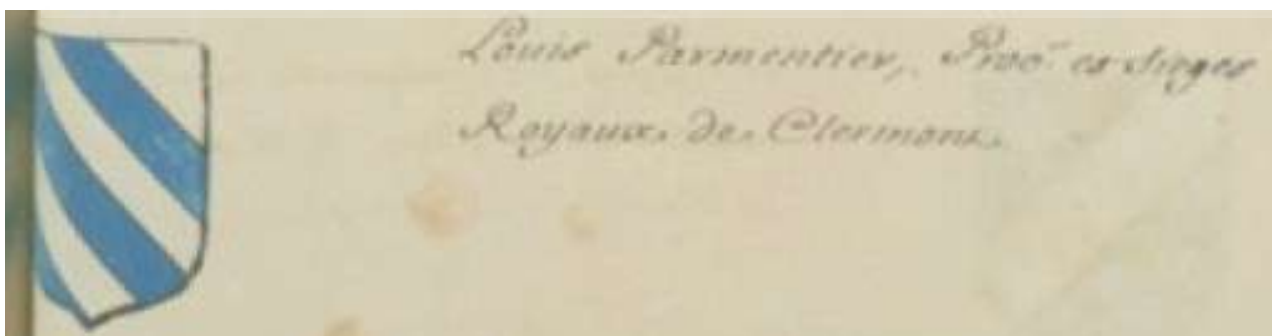 Louis Parmentier, Proc.r es sieges
Royaux de Clermont